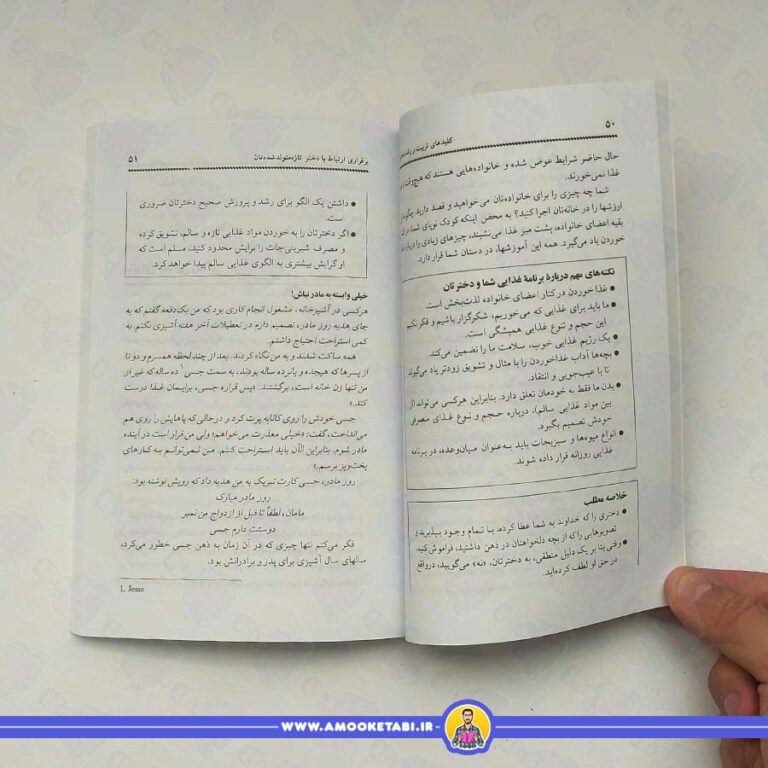 ۵۰
کلیدهای تربیت و رشد
حال حاضر شرایط عوض شده و خانواده‌هایی هستند که هیچ‌وقت
غذا نمی‌خورند.
شما چه چیزی را برای خانواده‌تان می‌خواهید و قصد دارید چگونه
ارزشها را در خانه‌تان اجرا کنید؟ به محض اینکه کودک نوپای شما
بقیه اعضای خانواده، پشت میز غذا می‌نشیند، چیزهای زیادی را درباره
خوردن یاد می‌گیرد. همه این آموزشها، در دستان شما قرار دارد.
نکته‌های مهم دربارهٔ برنامهٔ غذایی شما و دخترتان
● غذا خوردن در کنار اعضای خانواده لذت‌بخش است.
● ما باید برای غذایی که می‌خوریم، شکرگزار باشیم و فکر نکنیم
این حجم و تنوع غذایی همیشگی است.
● یک رژیم غذایی خوب، سلامت ما را تضمین می‌کند.
● بچه‌ها آداب غذا خوردن را با مثال و تشویق زودتر یاد می‌گیرند
تا با عیب‌جویی و انتقاد.
● بدن ما فقط به خودمان تعلق دارد. بنابراین هرکسی می‌تواند (از
بین مواد غذایی سالم)، درباره حجم و نوع غذای مصرفی
خودش تصمیم بگیرد.
● انواع میوه‌ها و سبزیجات باید به‌عنوان میان‌وعده، در برنامه
غذایی روزانه قرار داده شوند.
خلاصه مطلب
● دختری را که خداوند به شما عطا کرده، با تمام وجود بپذیرید و
تصویرهایی را که از بچه دلخواهتان در ذهن داشتید، فراموش کنید.
● وقتی بنا بر یک دلیل منطقی، به دخترتان، «نه» می‌گویید، درواقع
در حق او لطف کرده‌اید.
برقراری ارتباط با دختر تازه‌متولدشده‌تان
۵۱
● داشتن یک الگو برای رشد و پرورش صحیح دخترتان ضروری
است.
● اگر دخترتان را به خوردن مواد غذایی تازه و سالم، تشویق کرده
و مصرف شیرینی‌جات را برایش محدود کنید، مسلم است که
او گرایش بیشتری به الگوی غذایی سالم پیدا خواهد کرد.
خیلی وابسته به مادر نباش!
هرکسی در آشپزخانه، مشغول انجام کاری بود که من یک‌دفعه گفتم که به
جای هدیه روز مادر، تصمیم دارم در تعطیلات آخر هفته آشپزی نکنم. به
کمی استراحت احتیاج داشتم.
همه ساکت شدند و به من نگاه کردند. بعد از چند لحظه همسرم و دو تا
از پسرها که هیجده و پانزده ساله بودند، به سمت جسی¹ ده ساله که غیر از
من تنها زن خانه است، برگشتند: «پس قراره جسی، برایمان غذا درست
کند.»
جسی خودش را روی کاناپه پرت کرد و درحالی که پاهایش را روی هم
می‌انداخت، گفت: «خیلی معذرت می‌خواهم! ولی من قرار است در آینده
مادر شوم. بنابراین الآن باید استراحت کنم. من نمی‌توانم به کارهای
پخت‌وپز برسم.»
روز مادر، جسی کارت تبریک به من هدیه داد که رویش نوشته بود:
روز مادر مبارک
مامان، لطفاً تا قبل از ازدواج من نمیر
دوستت دارم جسی
فکر می‌کنم تنها چیزی که در آن زمان به ذهن جسی خطور می‌کرد،
سالهای سال آشپزی برای پدر و برادرانش بود.
1. Jesse
WWW.AMOOKETABI.IR